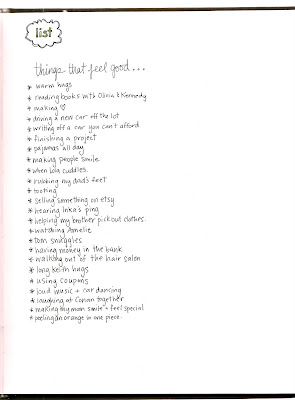 list
things that feel good...
* warm hugs
* reading books with Olivia & Kennedy
* making ♡
* driving a new car off the lot
* writing off a car you can't afford
* finishing a project
* pajamas all day
* making people smile
* when lola cuddles.
* rubbing my dad's feet
* tooting
* selling something on etsy
* hearing Inka's ping
* helping my brother pick out clothes.
* watching Amelie
* tom snuggles
* having money in the bank
* walking out of the hair salon
* long keith hugs
* using coupons
* loud music + car dancing
* laughing at Conan together
* making my mom smile + feel special
* peeling an orange in one piece.